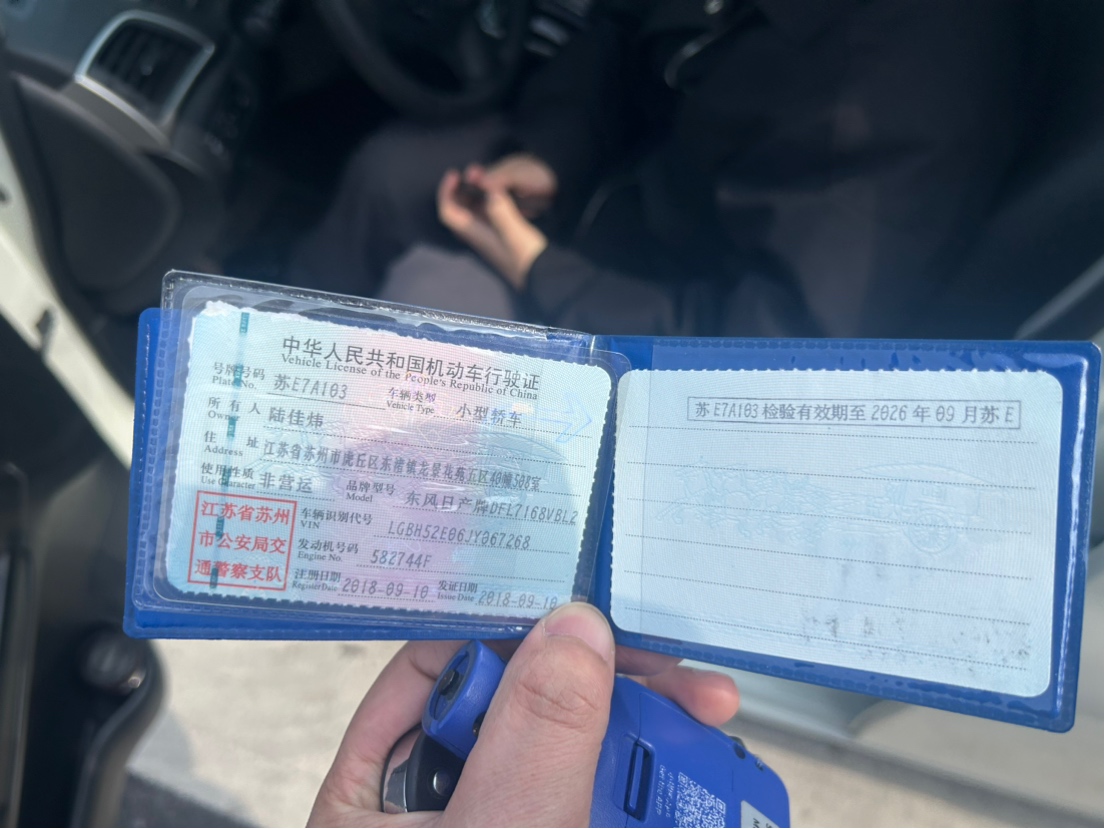 中华人民共和国机动车行驶证
Vehicle License of the People's Republic of China
号牌号码 苏E7A103 车辆类型 小型轿车
Plate No. Vehicle Type
所有人 陆佳炜
Owner
住址 江苏省苏州市虎丘区东渚镇龙景花苑五区40幢508室
Address
使用性质 非营运 品牌型号 东风日产牌DFL7168VBL2
Use Character Model
江苏省苏州
市公安局交
通警察支队
车辆识别代号 LGBH52E06JY067268
VIN
发动机号码 582744F
Engine No.
注册日期 2018-09-10 发证日期 2018-09-10
Register Date Issue Date
苏E7A103检验有效期至2026年09月苏E